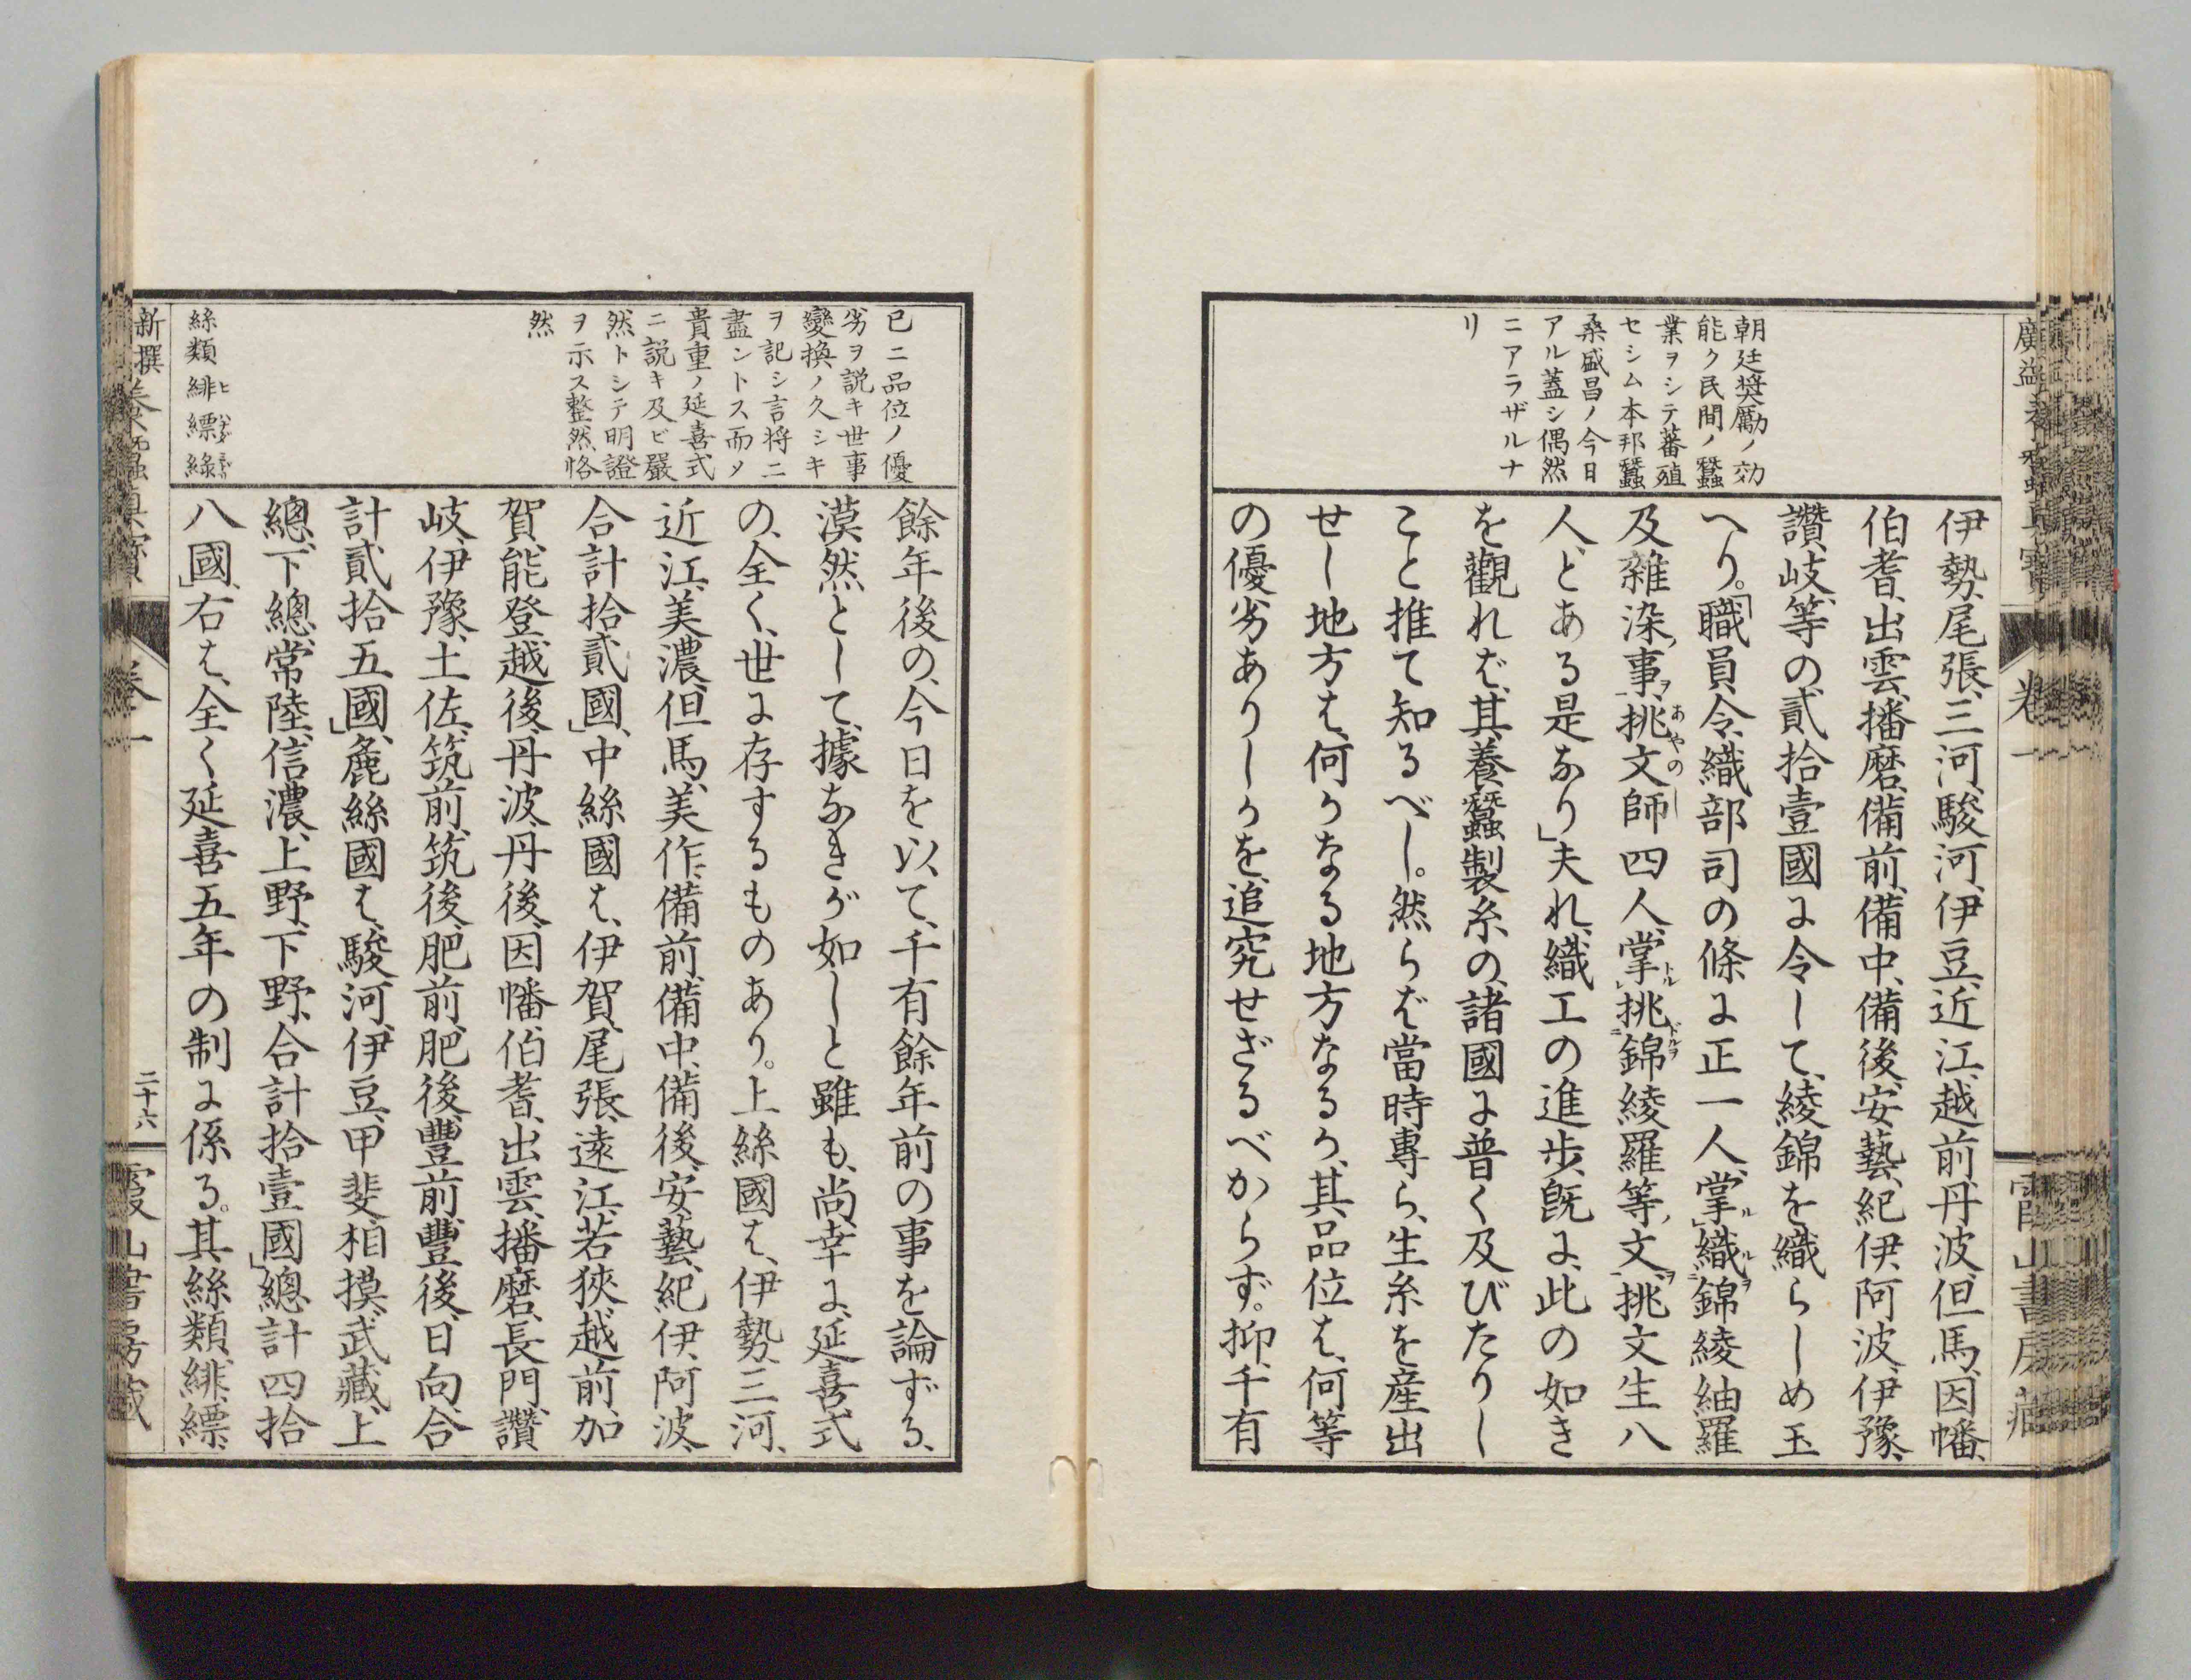 朝廷奨勵ノ効
能ク民間ノ蠶
業ヲシテ蕃殖
セシム本邦蠶
桑盛昌ノ今日
アル蓋シ偶然
ニアラザルナ
リ
伊勢、尾張、三河、駿河、伊豆、近江、越前、丹波、但馬、因幡、
伯耆、出雲、播磨、備前、備中、備後、安藝、紀伊、阿波、伊豫、
讚岐、等の貳拾壹國に令して、綾錦を織らしめ玉
へり。「職員令、織部司の條に正一人、掌織錦綾紬羅
及雜染事、挑文師四人、掌挑錦綾羅等文、挑文生八
人、とある是なり」夫れ、織工の進步、既に、此の如き
を觀れば、其養蠶製糸の、諸國に普く及びたりし
こと推て知るべし。然らば當時專ら、生糸を産出
せし地方は、何かなる地方なるか、其品位は、何等
の優劣ありしかを、追究せざるべからず。抑、千有
卷一
已ニ品位ノ優
劣ヲ説キ世事
變換ノ久シキ
ヲ記シ言將ニ
盡ントス而メ
貴重ノ延喜式
ニ説キ及ビ嚴
然トシテ明證
ヲ示ス整然恪
然
絲類緋縹綠
餘年後の、今日を以て、千有餘年前の事を論ずる、
漠然として、據なきが如しと雖も、尚、幸に、延喜式
の、全く、世に存するものあり。上絲國は、伊勢、三河、
近江、美濃、但馬、美作、備前、備中、備後、安藝、紀伊、阿波、
合計拾貳國」、中絲國は、伊賀、尾張、遠江、若狹、越前、加
賀、能登、越後、丹波、丹後、因幡、伯耆、出雲、播磨、長門、讚
岐、伊豫、土佐、筑前、筑後、肥前、肥後、豐前、豐後、日向、合
計貳拾五國」、麁絲國は、駿河、伊豆、甲斐、相摸、武藏、上
總、下總、常陸、信濃、上野、下野、合計拾壹國」總計四拾
八國」、右は、全く延喜五年の制に係る。其絲類、緋、縹、
新撰
卷一
二十六
霞山書房藏